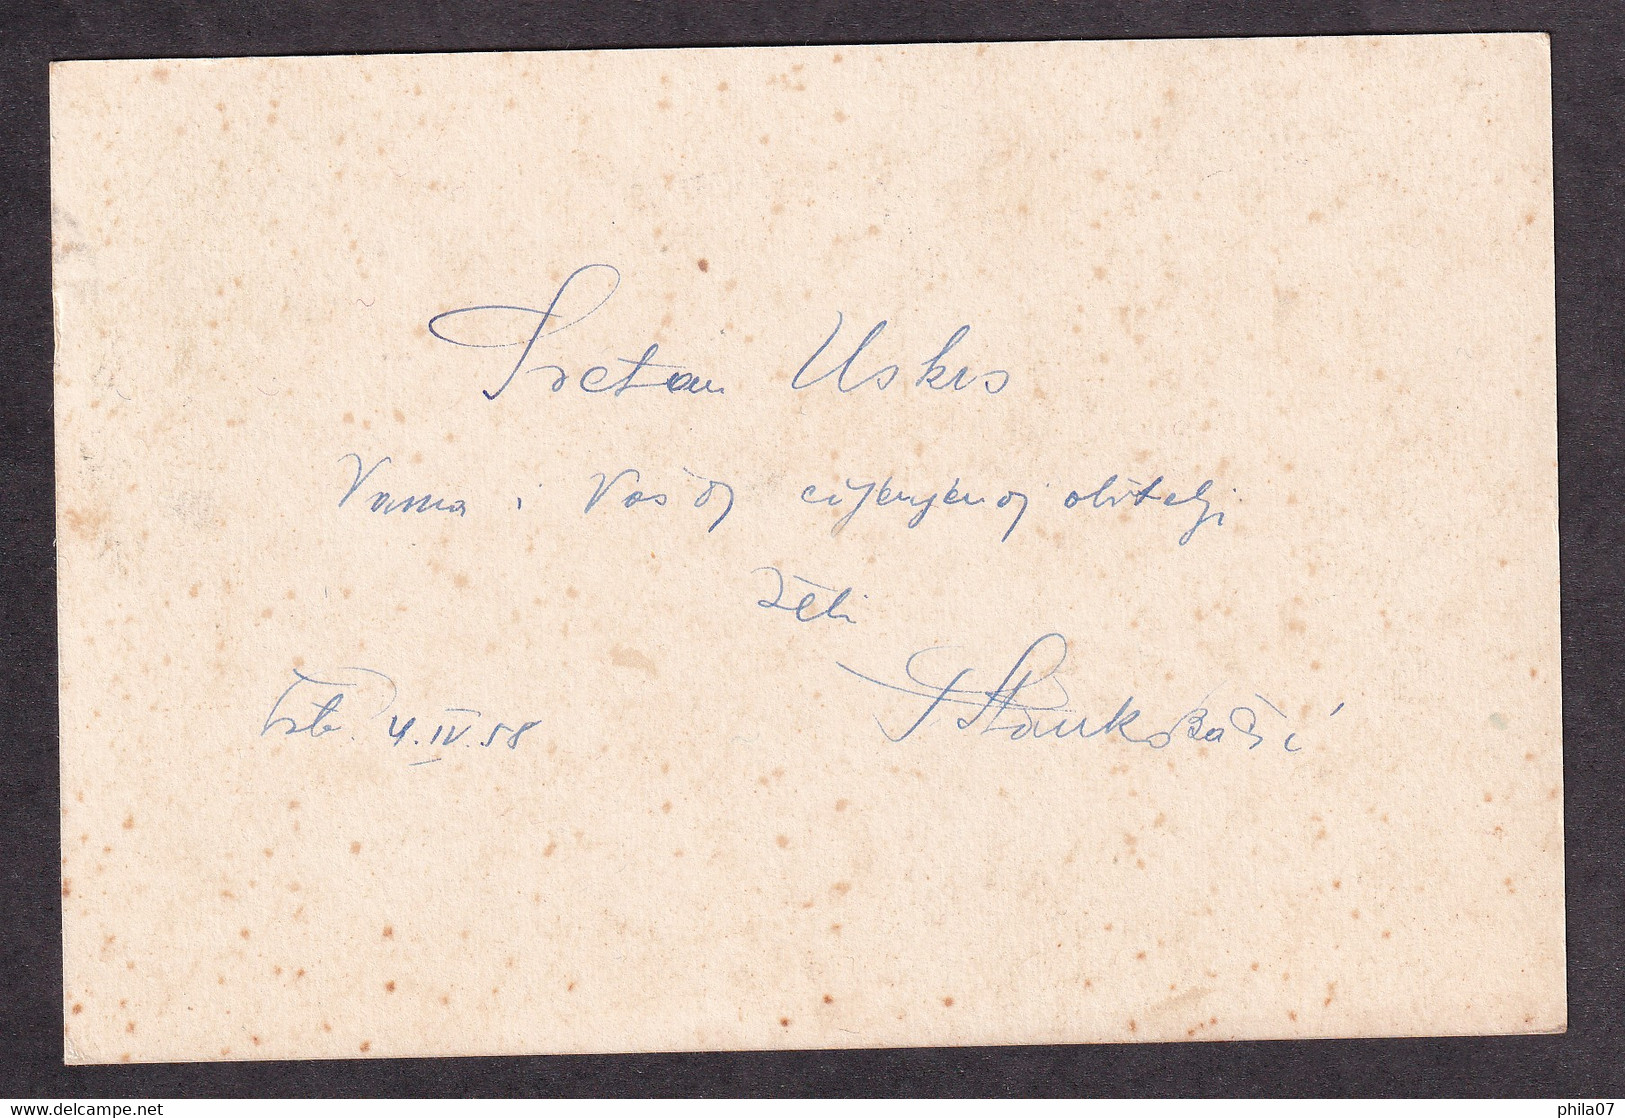 Sretan Uskrs
Vama i Vašoj cijenjenoj obitelji
želi
4.IV.58
www.delcampe.net
phila07